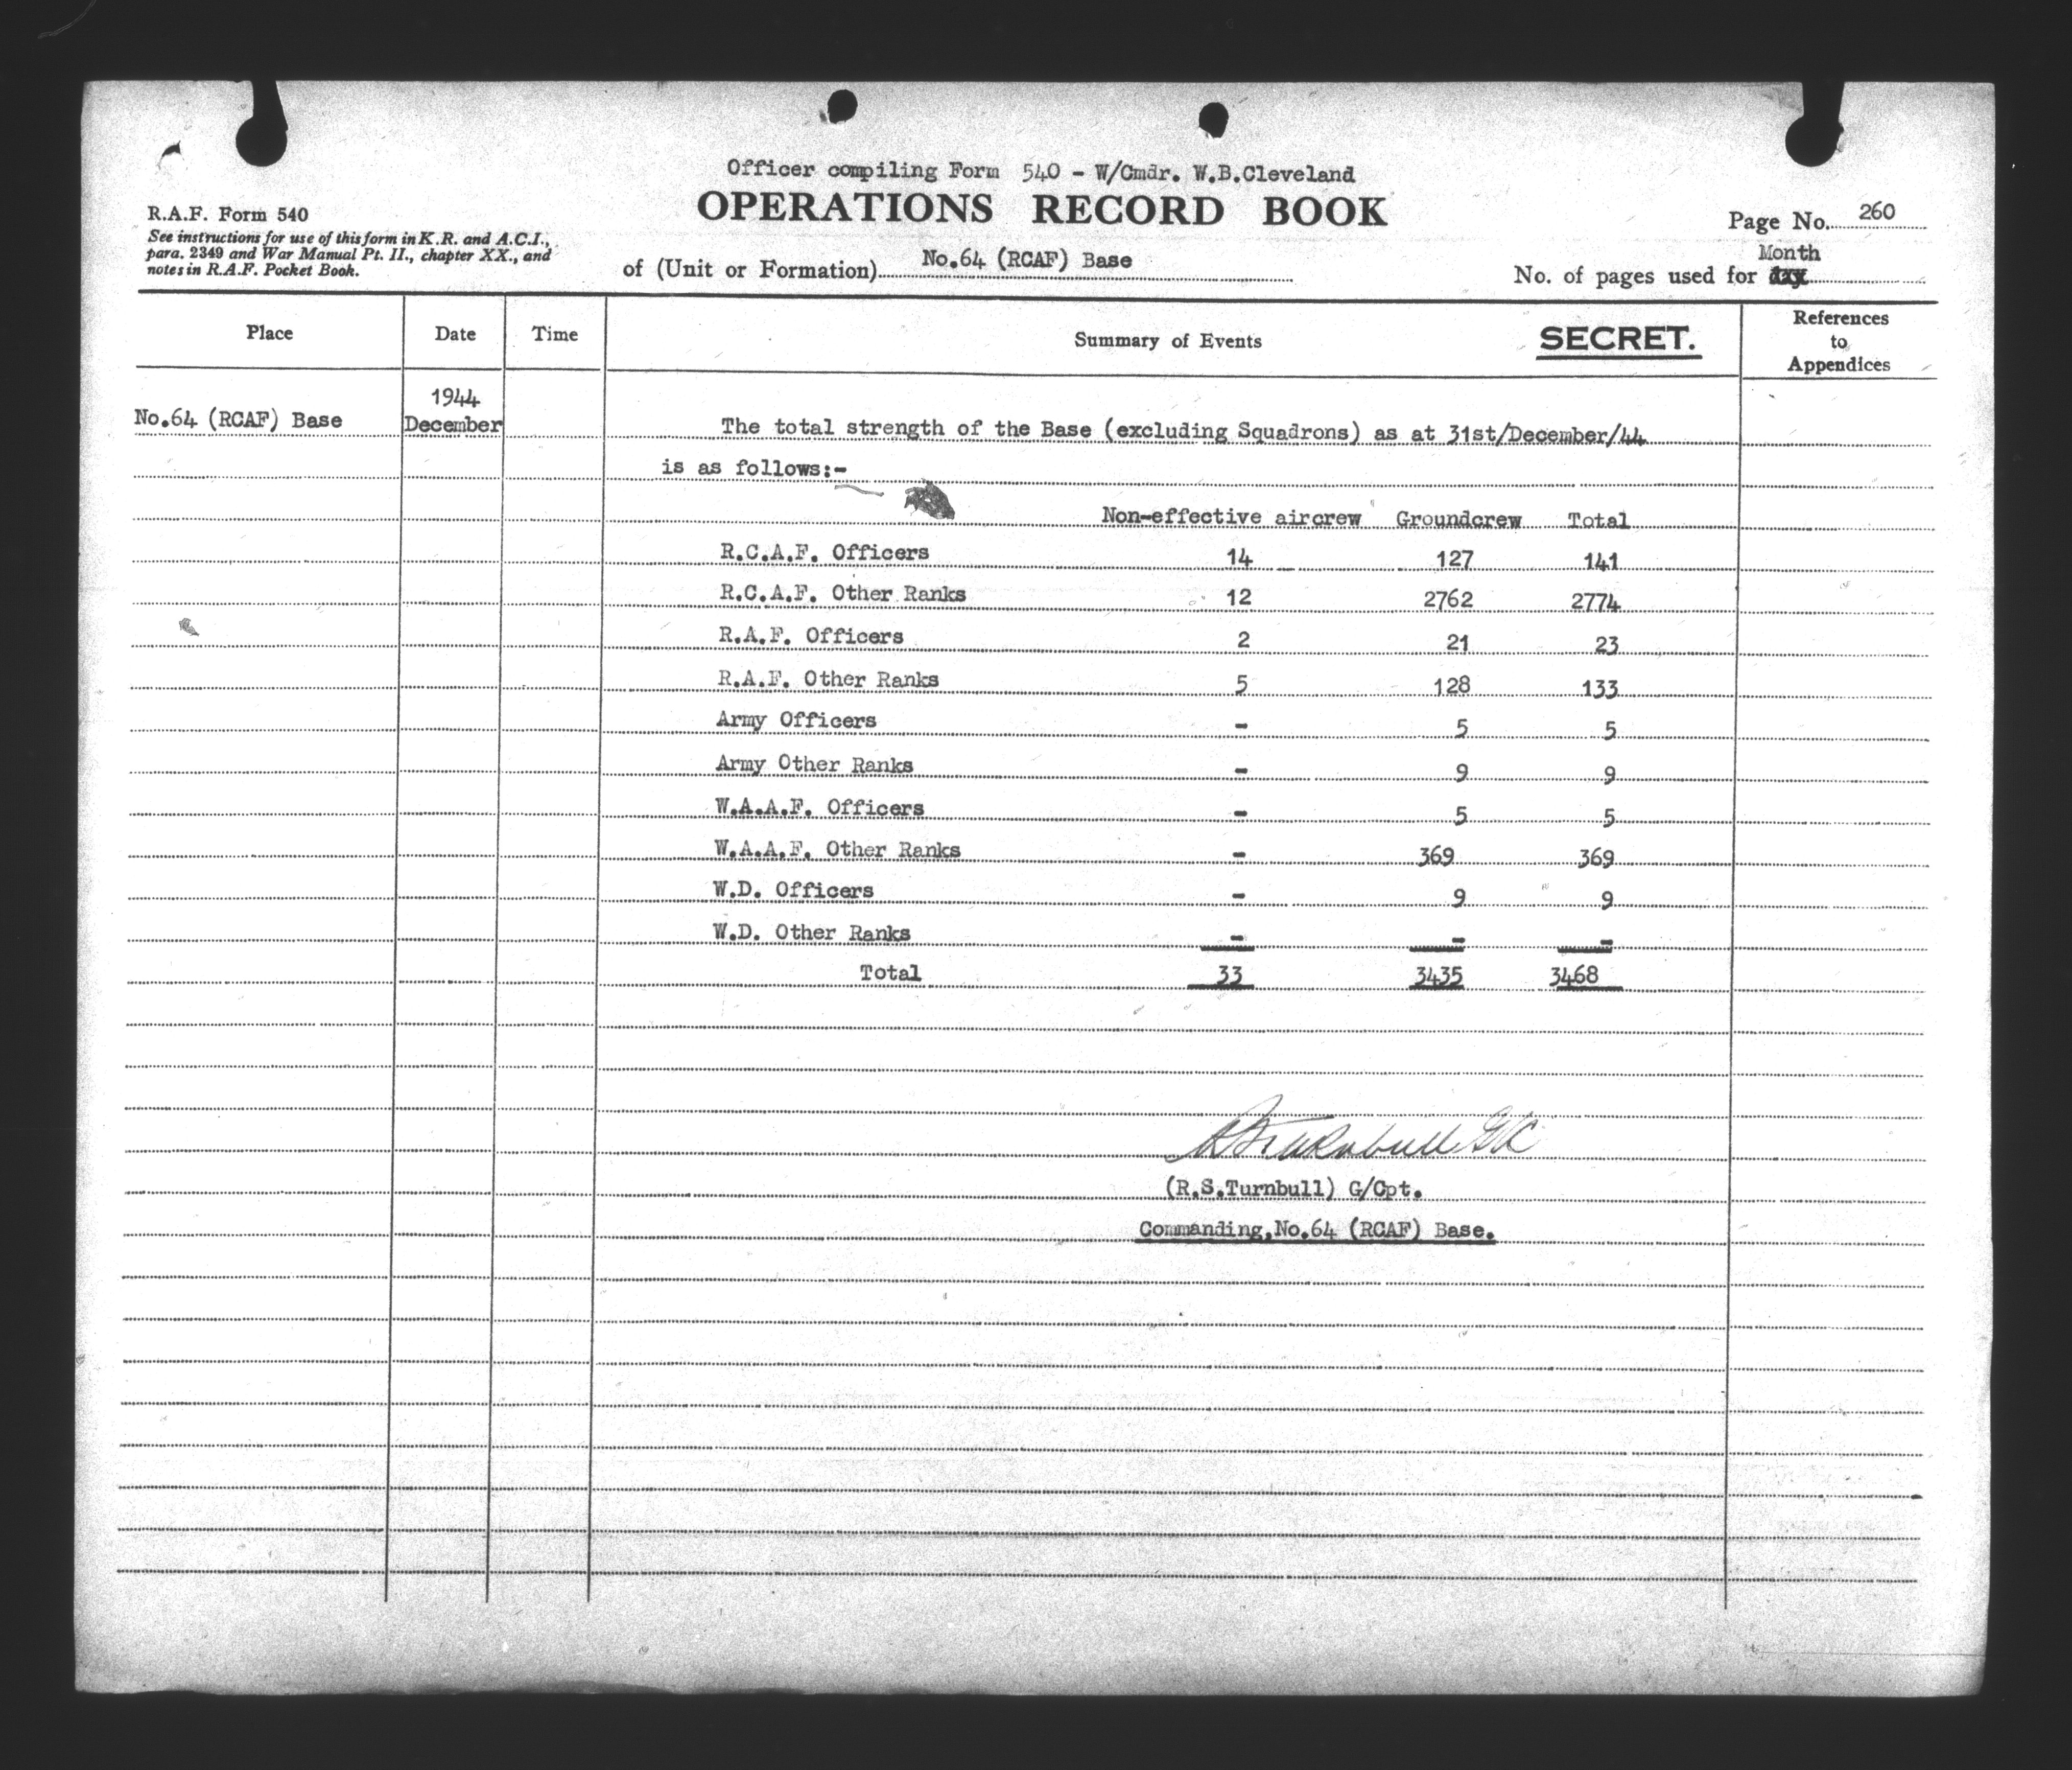 Officer compiling Form 540 - W/Cmdr. W.B.Cleveland
OPERATIONS RECORD BOOK
R.A.F. Form 540
See instructions for use of this form in K.R. and A.C.I.,
para. 2349 and War Manual Pt. II., chapter XX., and
notes in R.A.F. Pocket Book.
of (Unit or Formation) No.64 (RCAF) Base
Page No. 260
Month
No. of pages used for day
Place Date Time Summary of Events SECRET. References to Appendices
1944
No.64 (RCAF) Base December The total strength of the Base (excluding Squadrons) as at 31st/December/44
is as follows:-
Non-effective aircrew Groundcrew Total
R.C.A.F. Officers 14 127 141
R.C.A.F. Other Ranks 12 2762 2774
R.A.F. Officers 2 21 23
R.A.F. Other Ranks 5 128 133
Army Officers - 5 5
Army Other Ranks - 9 9
W.A.A.F. Officers - 5 5
W.A.A.F. Other Ranks - 369 369
W.D. Officers - 9 9
W.D. Other Ranks - - -
Total 33 3435 3468
R S Turnbull G/C
(R.S.Turnbull) G/Cpt.
Commanding,No.64 (RCAF) Base.